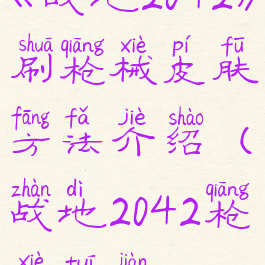 《战地2042》
shuā qiāng xiè pí fū
刷枪械皮肤
fāng fǎ jiè shào
方法介绍（
zhàn dì qiāng
战地2042枪
xiè tuī jiàn